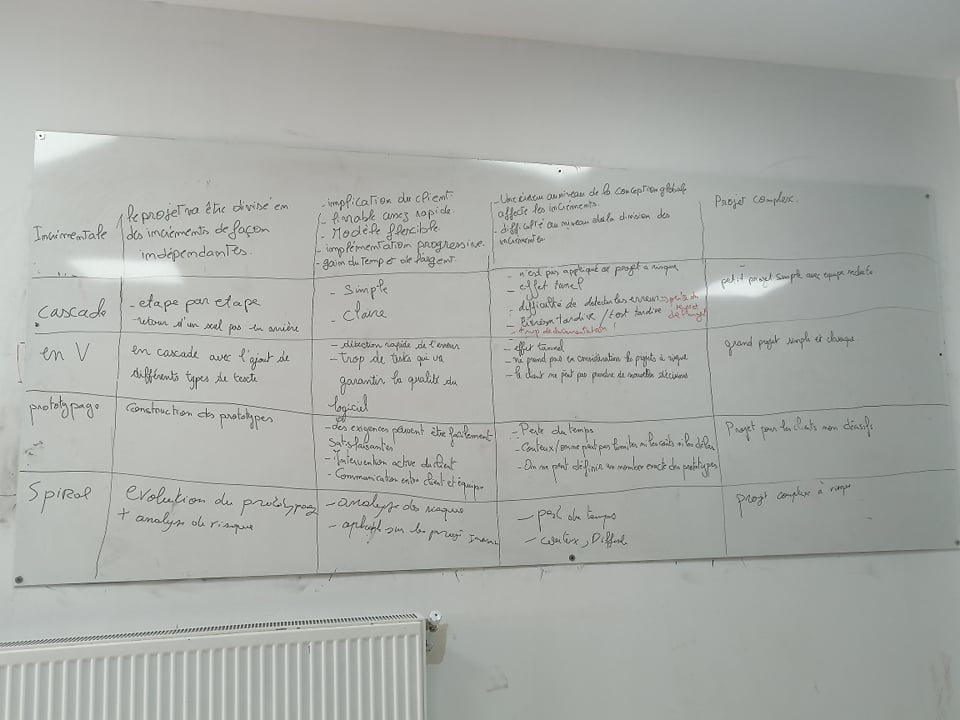 Incrémentale
le projet va être divisé en
des incréments de façon
indépendantes.
- implication du client
- livrable assez rapide.
- Modèle flexible.
- implémentation progressive.
- gain du temp et de l'argent.
- Une erreur au niveau de la conception globale
affecte les incréments.
- difficulté au niveau de la division des
incréments
Projet complexe.
Cascade
- etape par etape
- retour d'un seul pas en arrière
- Simple
- Claire
- n'est pas appliqué ce projet a risque
- effet tunel
- difficulté de detecter les erreur
- Livraison tardive / test tardive
+ trop de documentation
petit projet simple avec equipe
en V
en cascade avec l'ajout de
différents types de teste
- direction rapide de l'erreur
- trop de tests qui va
garantir la qualité du
logiciel
- effet tunnel
- ne prend pas en considération les projets à risque
- le client ne peut pas prendre de nouvelles décisions
grand projet simple et
prototypage
Construction des prototypes
- des exigences peuvent être facilement
satisfaisantes
- Intervention active du client
- Communication entre client et équipe
- Perte du temps
- Couteux / on ne peut pas limiter ni les coûts ni les délais
- On ne peut définir un nombre exacte des prototypes
Projet pour les clients non décisifs
Spiral
evolution du prototypage
+ analyse de risque
- analyse des risque
- sur les projet
- du temps
- couteux, Difficile
Projet complexe à risque